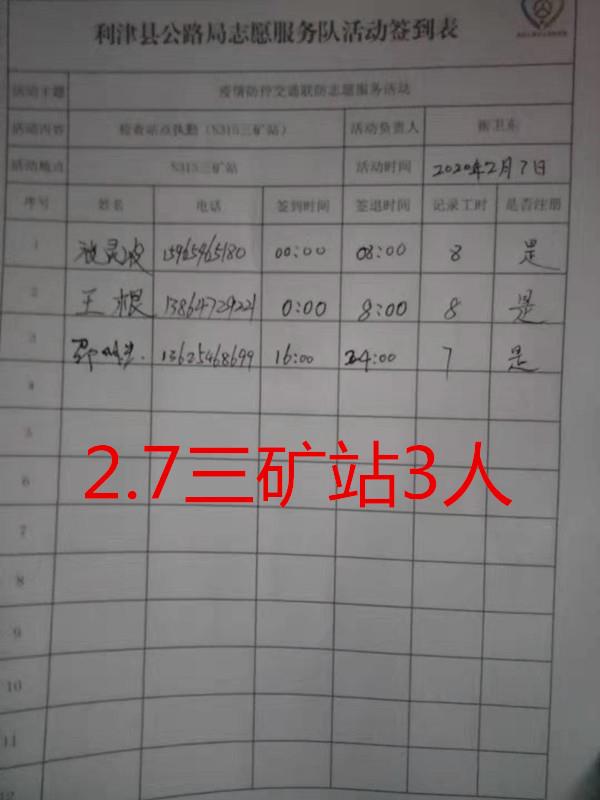 利津县公路局志愿服务队活动签到表
活动主题 疫情防控交通联防志愿服务活动
活动内容 检查站点执勤（S315三矿站） 活动负责人 卫东
活动地点 S315三矿站 活动时间 2020年2月7日
序号 姓名 电话 签到时间 签退时间 记录工时 是否注册
1 15965965180 00:00 08:00 8 是
2 王根 13864729221 0:00 8:00 8 是
3 邵 13625468699 16:00 24:00 7 是
4
5
2.7三矿站3人
6
7
8
9
10
11
12